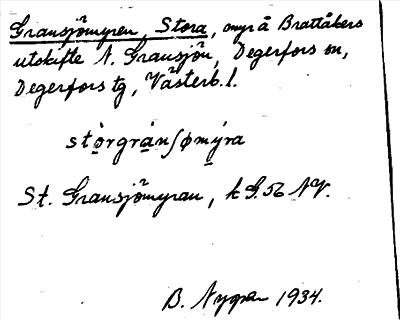 Gransjömyren, Stora, myr å Brattåkers
utskifte N. Gransjön, Degerfors sn,
Degerfors tg, Västerb. l.
stòrgrànʃømýra
St. Gransjömyran, k G. 56 NV.
B. Nygren 1934.